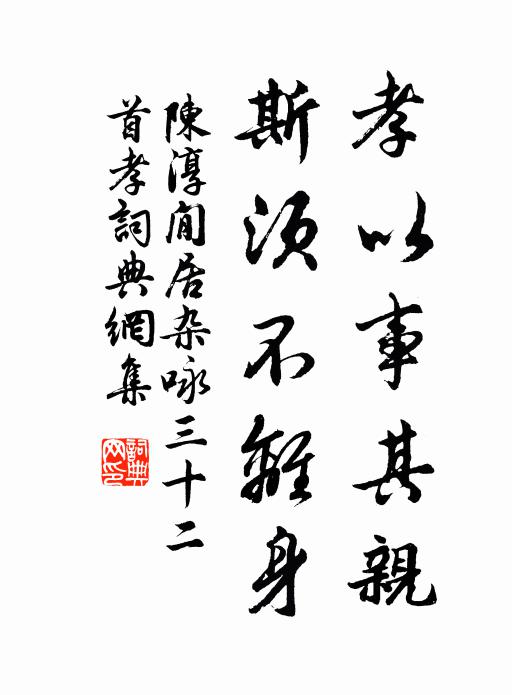 孝以事其親
斯須不離身
陳淳閒居杂咏三十二
首孝詞典網集
詞典
网印